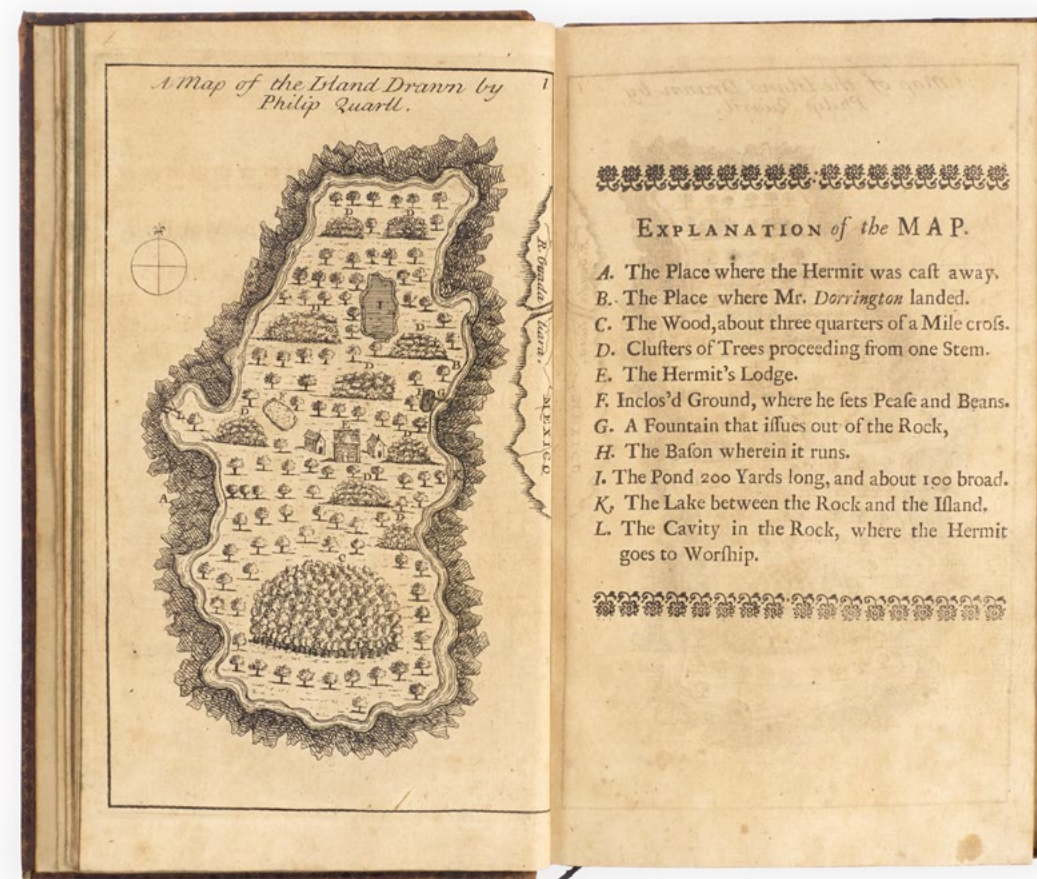 A Map of the Island Drawn by
Philip Quarll.
I
D
D
I
D
D
D
B
G
L
D
F
E
D
A
K
D
D
C
R. Guada
liara.
MEXICO
EXPLANATION of the MAP.
A. The Place where the Hermit was caſt away.
B. The Place where Mr. Dorrington landed.
C. The Wood, about three quarters of a Mile croſs.
D. Cluſters of Trees proceeding from one Stem.
E. The Hermit's Lodge.
F. Inclos'd Ground, where he ſets Peaſe and Beans.
G. A Fountain that iſſues out of the Rock,
H. The Baſon wherein it runs.
I. The Pond 200 Yards long, and about 100 broad.
K, The Lake between the Rock and the Iſland.
L. The Cavity in the Rock, where the Hermit
goes to Worſhip.